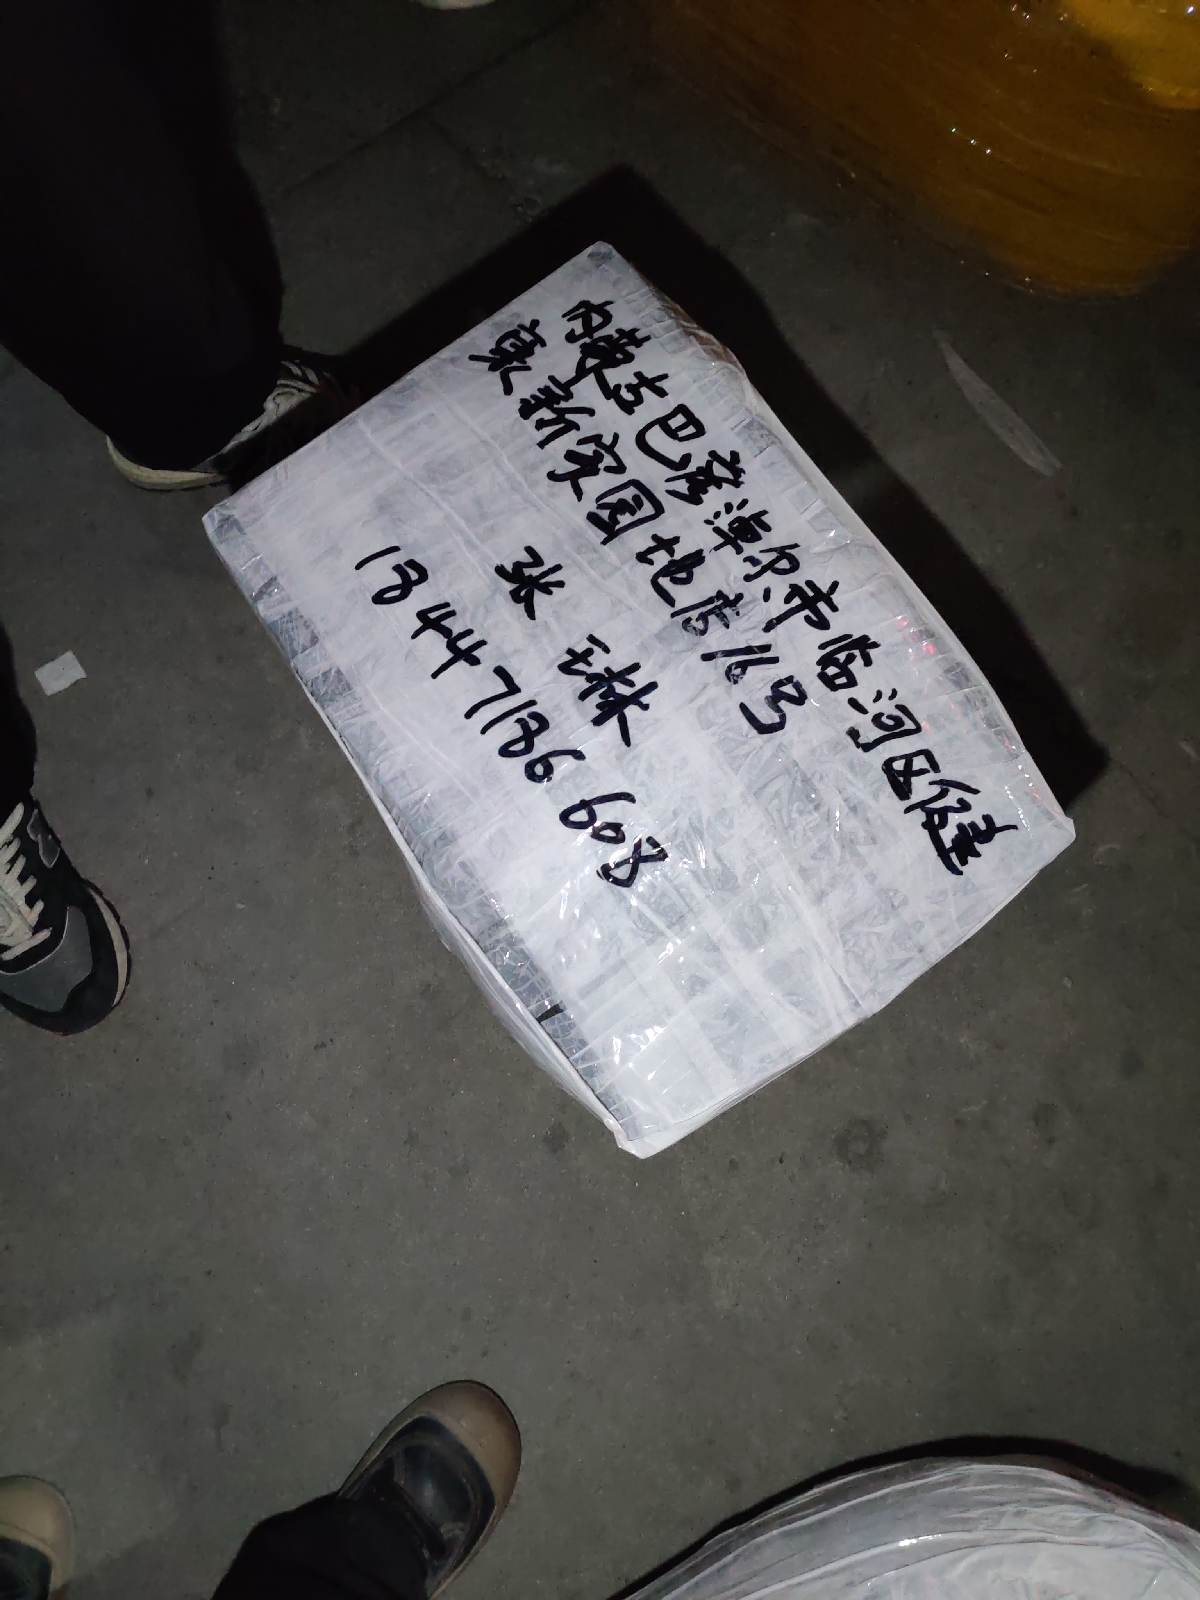 内蒙古巴彦淖尔市临河区健
康新家园地店16号
张琳
18447186608